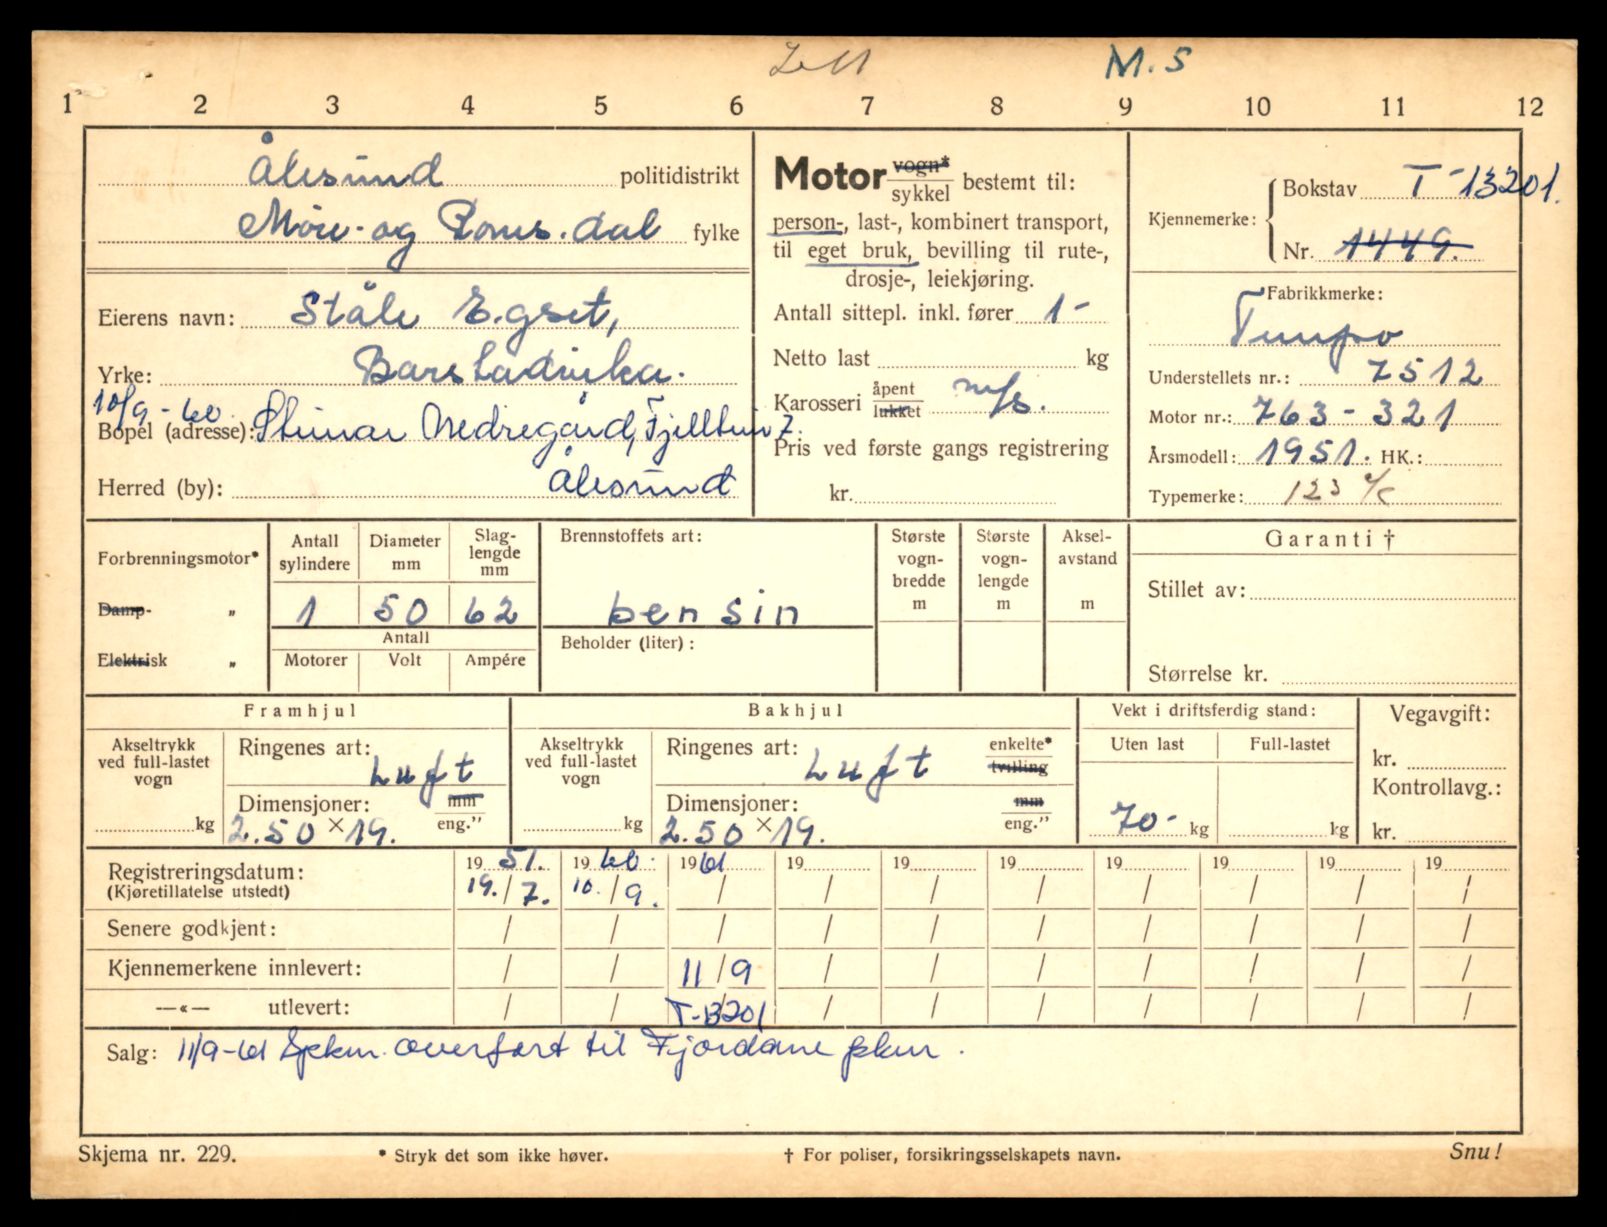 M. S
1 2 3 4 5 6 7 8 9 10 11 12
Ålesund politidistrikt
Møre- og Roms.dal fylke
Eierens navn: Ståle E.gset,
Yrke: Barstadvika.
10/9 - 60.
Bopel (adresse): Steinar Nedregård, Fjelltun 7.
Herred (by): Ålesund
Motor vogn* sykkel bestemt til:
person-, last-, kombinert transport,
til eget bruk, bevilling til rute-,
drosje-, leiekjøring.
Antall sittepl. inkl. fører 1-
Netto last kg
Karosseri åpent lukket m/s.
Pris ved første gangs registrering
kr.
Kjennemerke: Bokstav T-13201.
Nr. 1449.
Fabrikkmerke:
Tempo
Understellets nr.: 7512
Motor nr.: 763-321
Årsmodell: 1951. HK.:
Typemerke: 123 c/c
Forbrenningsmotor*
Damp- „
Elektrisk „
Antall sylindere Diameter mm Slag-lengde mm
1 50 62
Antall
Motorer Volt Ampére
Brennstoffets art:
bensin
Beholder (liter):
Største vogn-bredde m
Største vogn-lengde m
Aksel-avstand m
Garanti †
Stillet av:
Størrelse kr.
Framhjul
Akseltrykk ved full-lastet vogn kg
Ringenes art: Luft
Dimensjoner: mm
2.50 × 19. eng."
Bakhjul
Akseltrykk ved full-lastet vogn kg
Ringenes art: Luft enkelte* tvilling
Dimensjoner: mm
2.50 × 19. eng."
Vekt i driftsferdig stand:
Uten last Full-lastet
70- kg kg
Vegavgift:
kr.
Kontrollavg.:
kr.
Registreringsdatum: 19 51. 19 60. 19 61 19 19 19 19 19 19 19
(Kjøretillatelse utstedt) 19./7. 10./9. / / / / / / / /
Senere godkjent: / / / / / / / / / /
Kjennemerkene innlevert: / / 11/9 / / / / / / /
—«— utlevert: / / T-13201 / / / / / / /
Salg: 11/9-61 Spkm. overført til Fjordane pkm.
Skjema nr. 229.
* Stryk det som ikke høver.
† For poliser, forsikringsselskapets navn.
Snu!